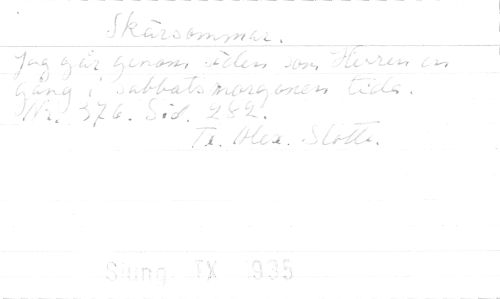 Skärsommar.
Jag går genom säden som Herren en
gång i sabbatsmorgonen tida.
Nr. 376. Sid. 282.
Tr. Alex. Slotte.
Sjung IX 1935